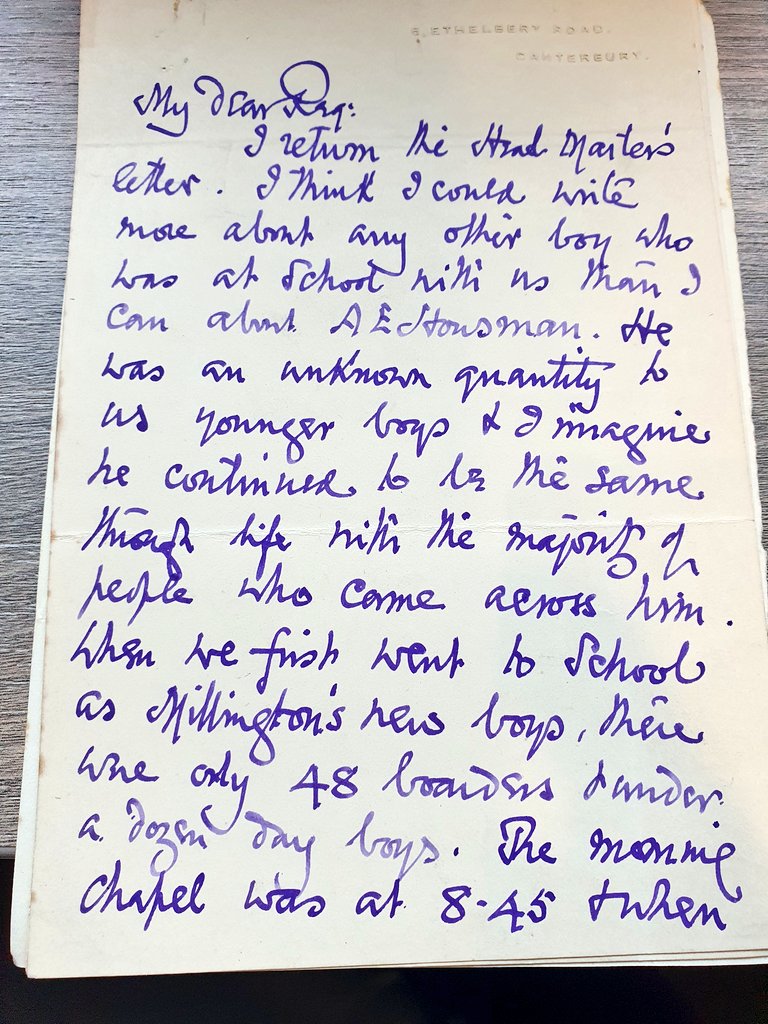 6, ETHELBERT ROAD,
CANTERBURY.
My dear Reg:
I return the Head Master's
letter. I think I could write
more about any other boy who
was at School with us than I
can about A E Housman. He
was an unknown quantity to
us younger boys & I imagine
he continued to be the same
through life with the majority of
people who came across him.
When we first went to School
as Millington's new boys, there
were only 48 boarders & under
a dozen day boys. The morning
Chapel was at 8-45 & when